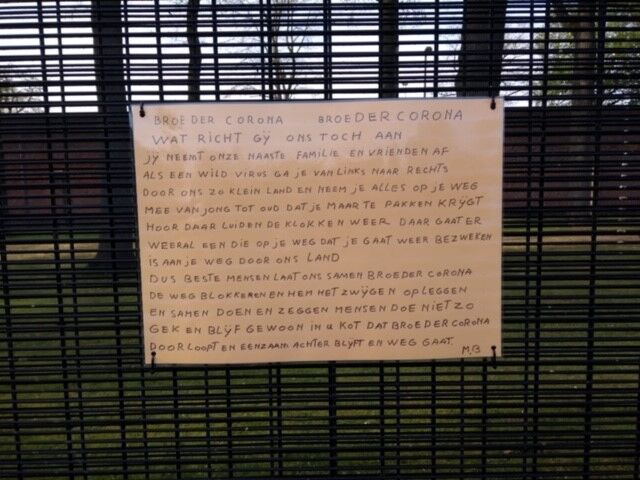 BROEDER CORONA BROEDER CORONA
WAT RICHT GŸ ONS TOCH AAN
JŸ NEEMT ONZE NAASTE FAMILIE EN VRIENDEN AF
ALS EEN WILD VIRUS GA JE VAN LINKS NAAR RECHTS
DOOR ONS ZO KLEIN LAND EN NEEM JE ALLES OP JE WEG
MEE VAN JONG TOT OUD DAT JE MAAR TE PAKKEN KRŸGT
HOOR DAAR LUIDEN DE KLOKKEN WEER DAAR GAAT ER
WEERAL EEN DIE OP JE WEG DAT JE GAAT WEER BEZWEKEN
IS AAN JE WEG DOOR ONS LAND
DUS BESTE MENSEN LAAT ONS SAMEN BROEDER CORONA
DE WEG BLOKKEREN EN HEM HET ZWŸGEN OPLEGGEN
EN SAMEN DOEN EN ZEGGEN MENSEN DOE NIET ZO
GEK EN BLŸF GEWOON IN U KOT DAT BROEDER CORONA
DOORLOOPT EN EENZAAM ACHTER BLŸFT EN WEG GAAT.
M.B